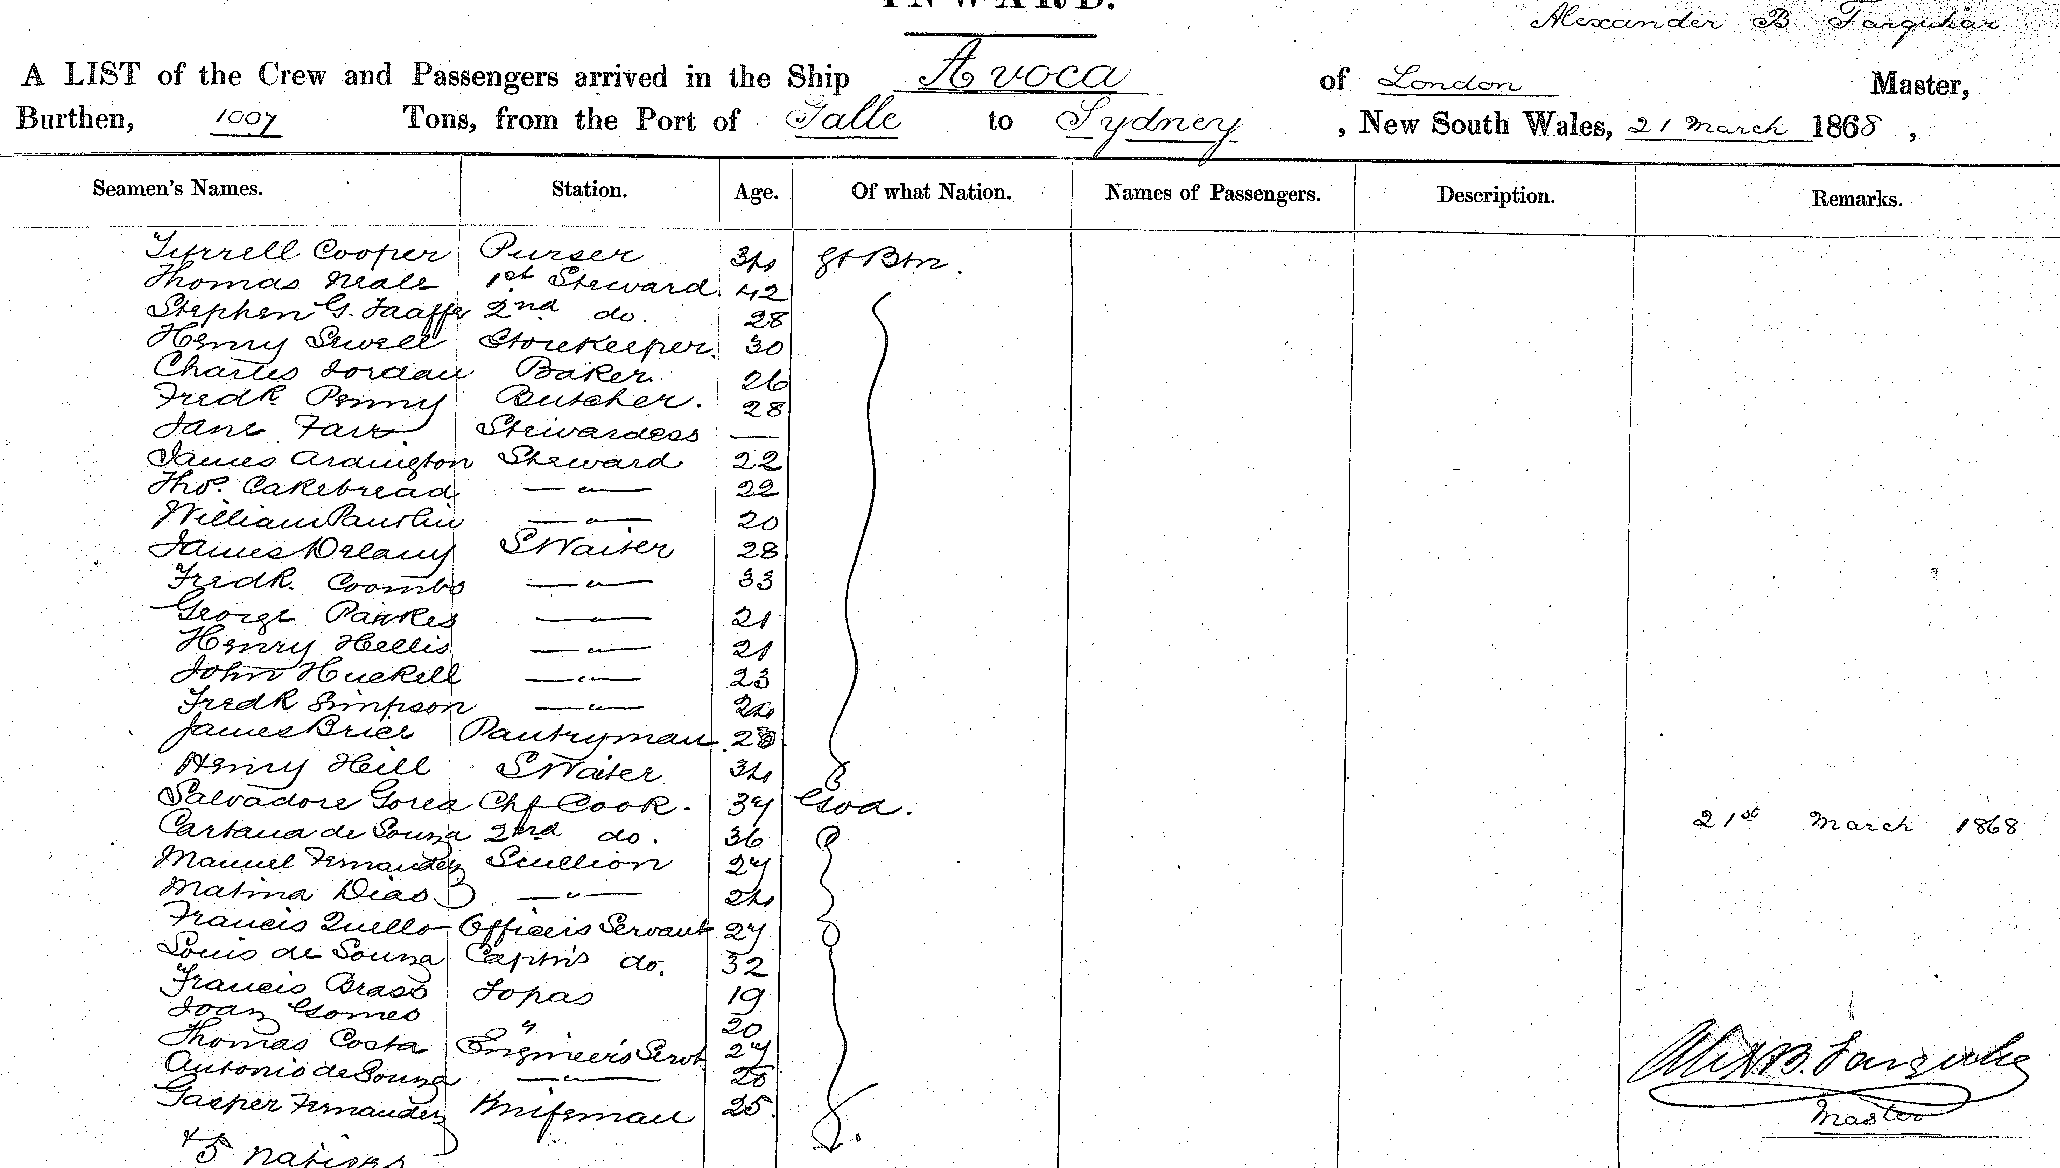 INWARD.
Alexander B Farquhar
A LIST of the Crew and Passengers arrived in the Ship Avoca of London Master,
Burthen, 1007 Tons, from the Port of Galle to Sydney, New South Wales, 21 March 1868,
Seamen's Names. Station. Age. Of what Nation. Names of Passengers. Description. Remarks.
Tyrrell Cooper Purser 34 Gt Btn.
Thomas Neale 1st Steward 42
Stephen G. 2nd do. 28
Henry Sewell Storekeeper. 30
Charles Jordan Baker. 26
Fredk Penny Butcher. 28
Jane Farr Stewardess —
James Ardington Steward 22
Thos. Cakebread — " — 22
William Paurlin — " — 20
James Delany S Waiter 28
Fredk. Coombs — " — 33
George Parkes — " — 21
Henry Hellis — " — 21
John Huckell — " — 23
Fredk Simpson — " — 24
James Brier Pantryman 28
Henry Hill S Waiter 34
Salvadore Gorea Chf Cook. 37 Goa.
de Souza 2nd do. 36
Manuel Fernandez Scullion 27
Matina Dias — " — 24
Francis Quello Officers Servant 27
Louis de Souza Captns do. 32
Francis Brass Topas 19
Joan Gomes " 20
Thomas Costa Engineers Servt 27
Antonio de Souza — " — 26
Gasper Fernandez Knifeman 25
+ 5 natives
21st March 1868
Alex B. Farquhar
Master